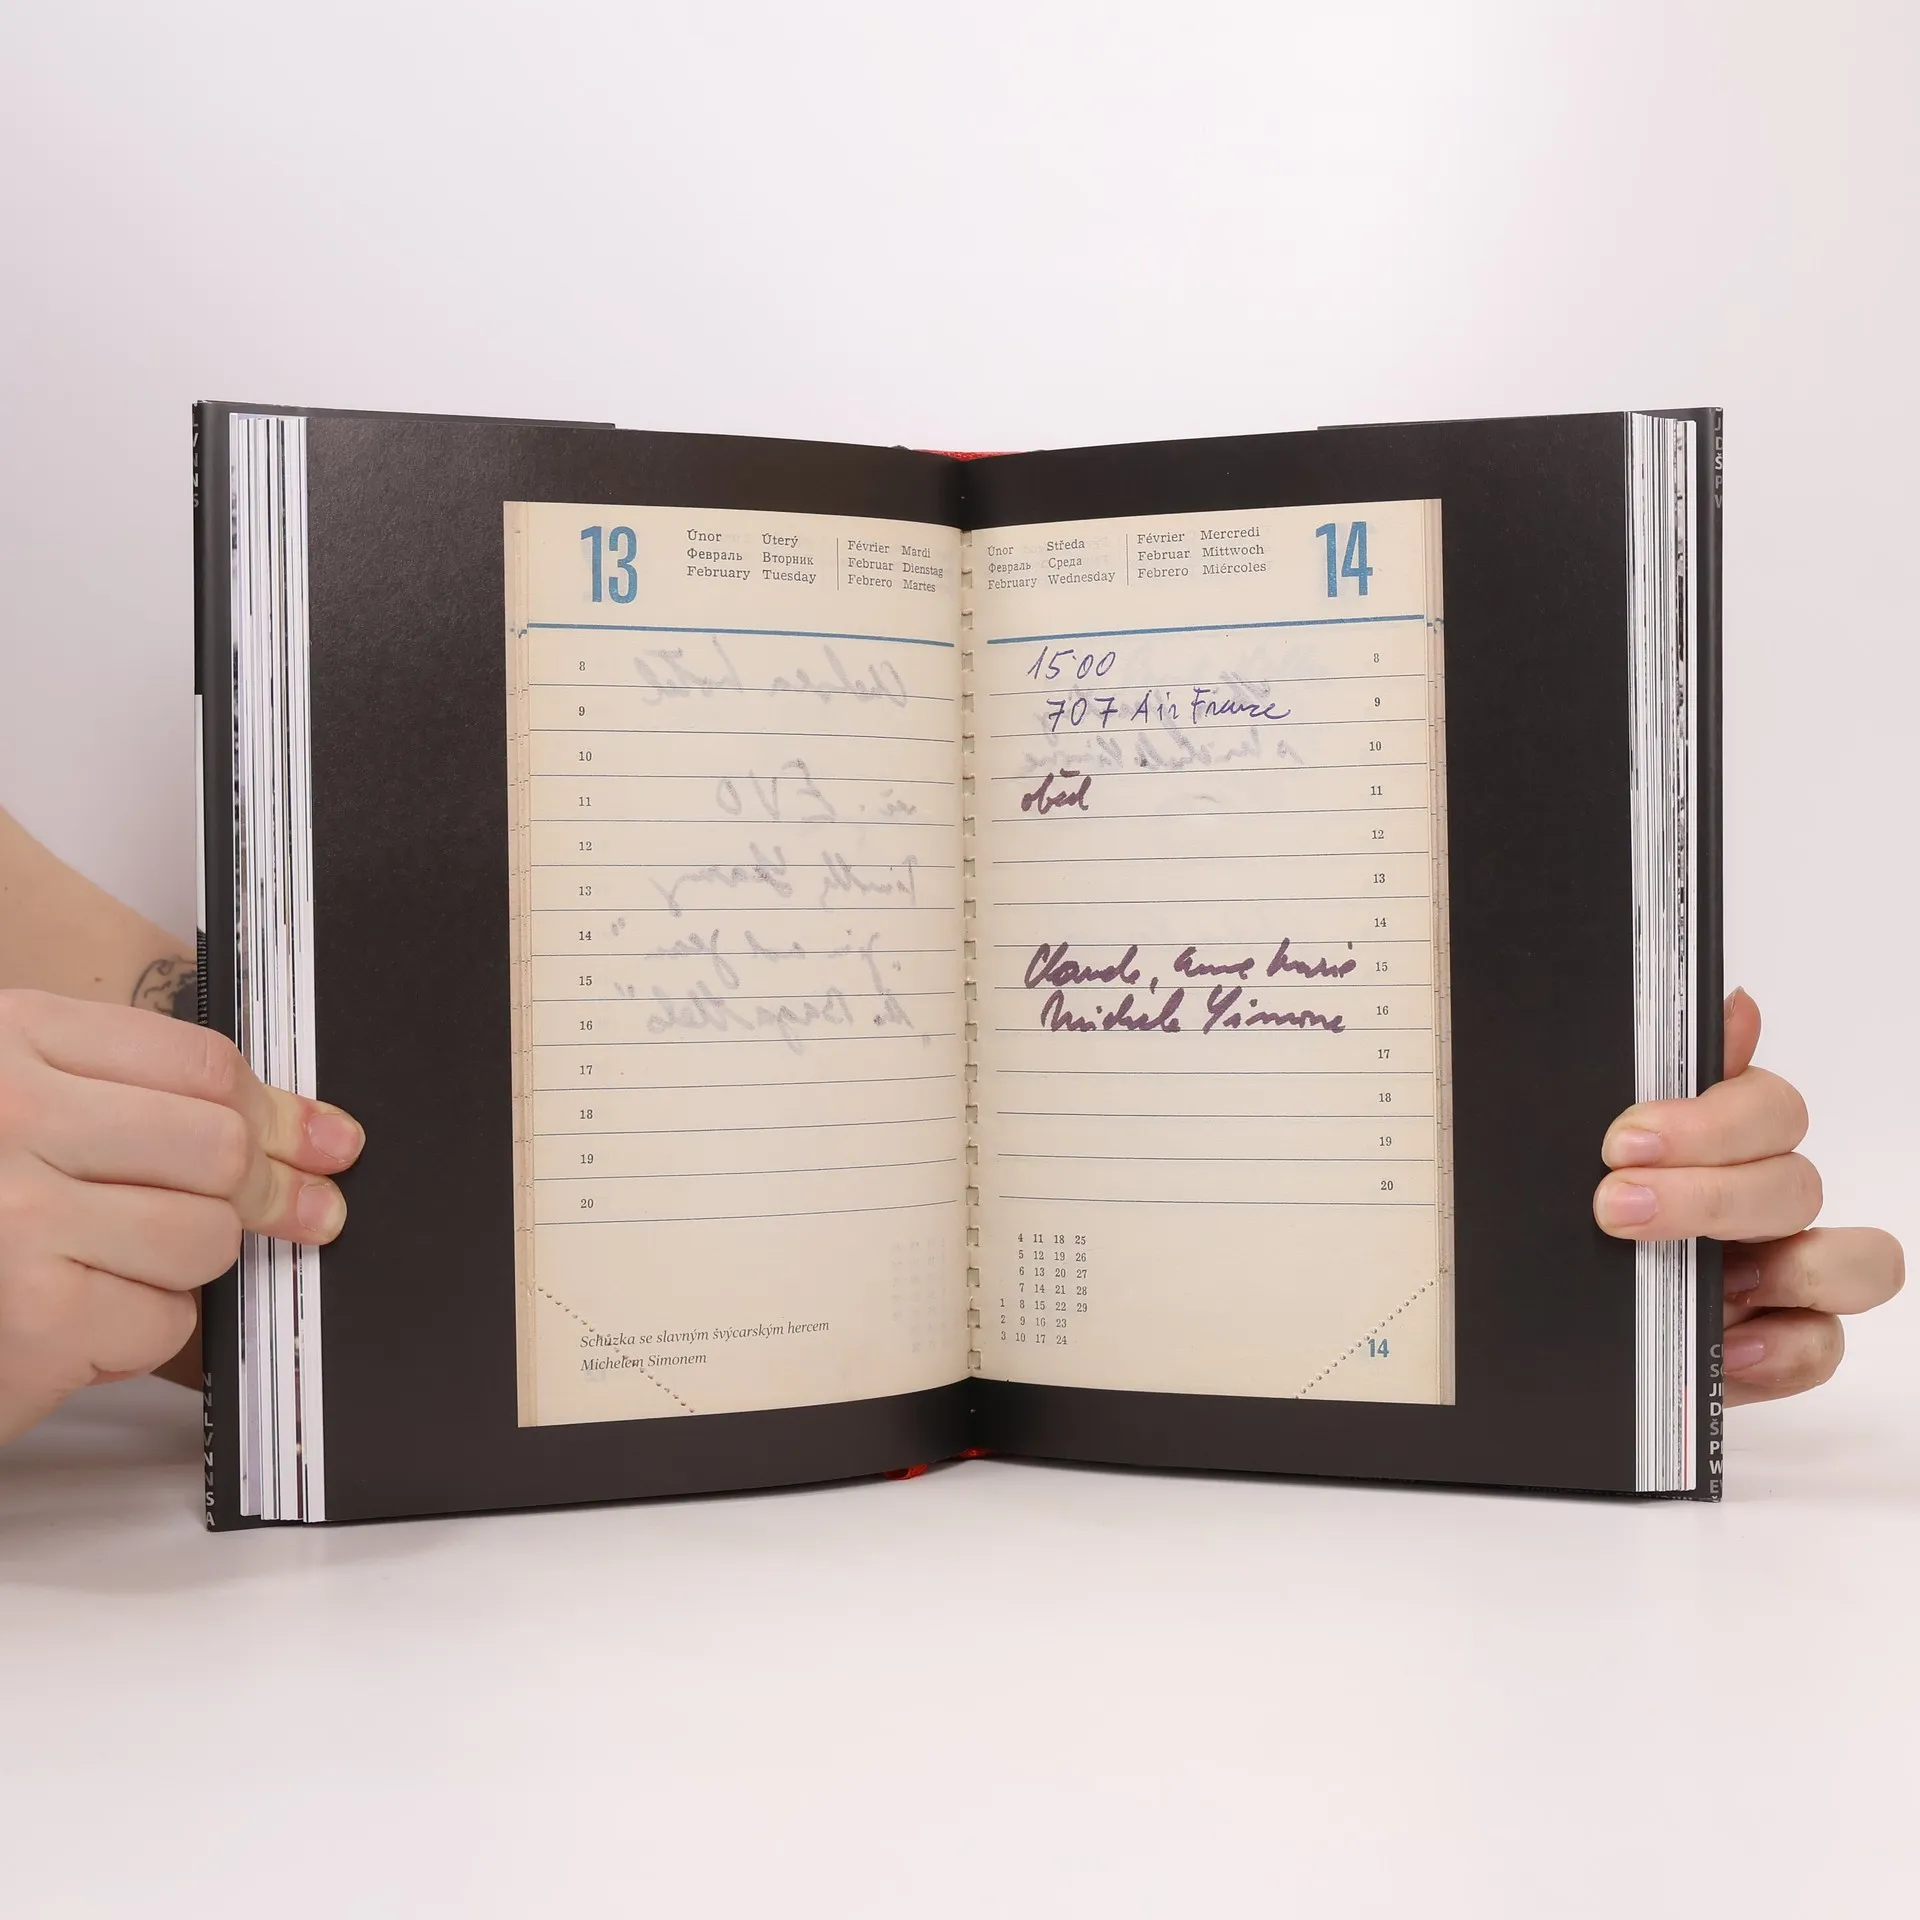 13
Únor Úterý
Февраль Вторник
February Tuesday
Février Mardi
Februar Dienstag
Febrero Martes
8
9
10
11
12
13
14
15
16
17
18
19
20
Schůzka se slavným švýcarským hercem
Michelem Simonem
Únor Středa
Февраль Среда
February Wednesday
Février Mercredi
Februar Mittwoch
Febrero Miércoles
14
15 00 8
707 Air France 9
10
oběd 11
12
13
14
Claude, Anne Marie 15
Michele Simone 16
17
18
19
20
4 11 18 25
5 12 19 26
6 13 20 27
7 14 21 28
1 8 15 22 29
2 9 16 23
3 10 17 24
14